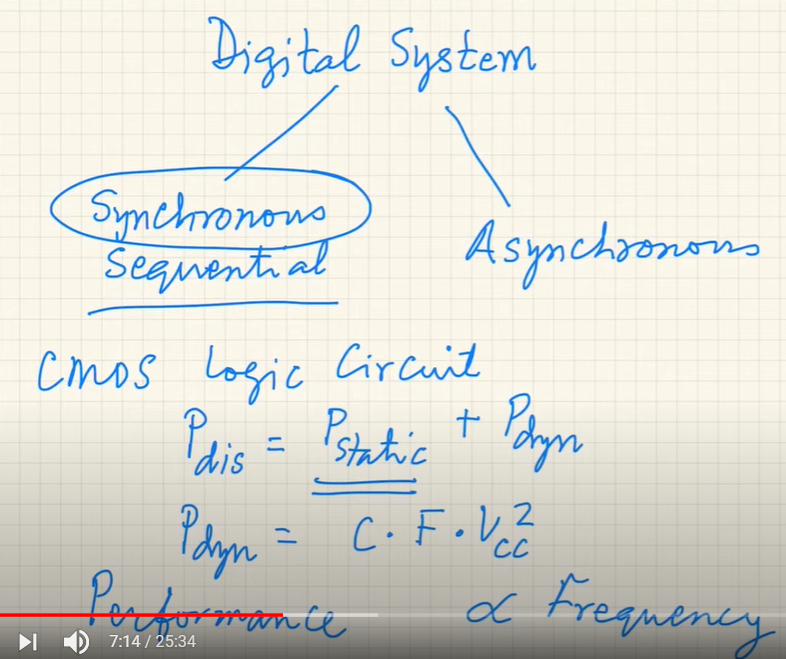 Digital System
Synchronous
Sequential
Asynchronous
CMOS Logic Circuit
P_dis = P_static + P_dyn
P_dyn = C · F · V_cc^2
Performance ∝ Frequency
7:14 / 25:34